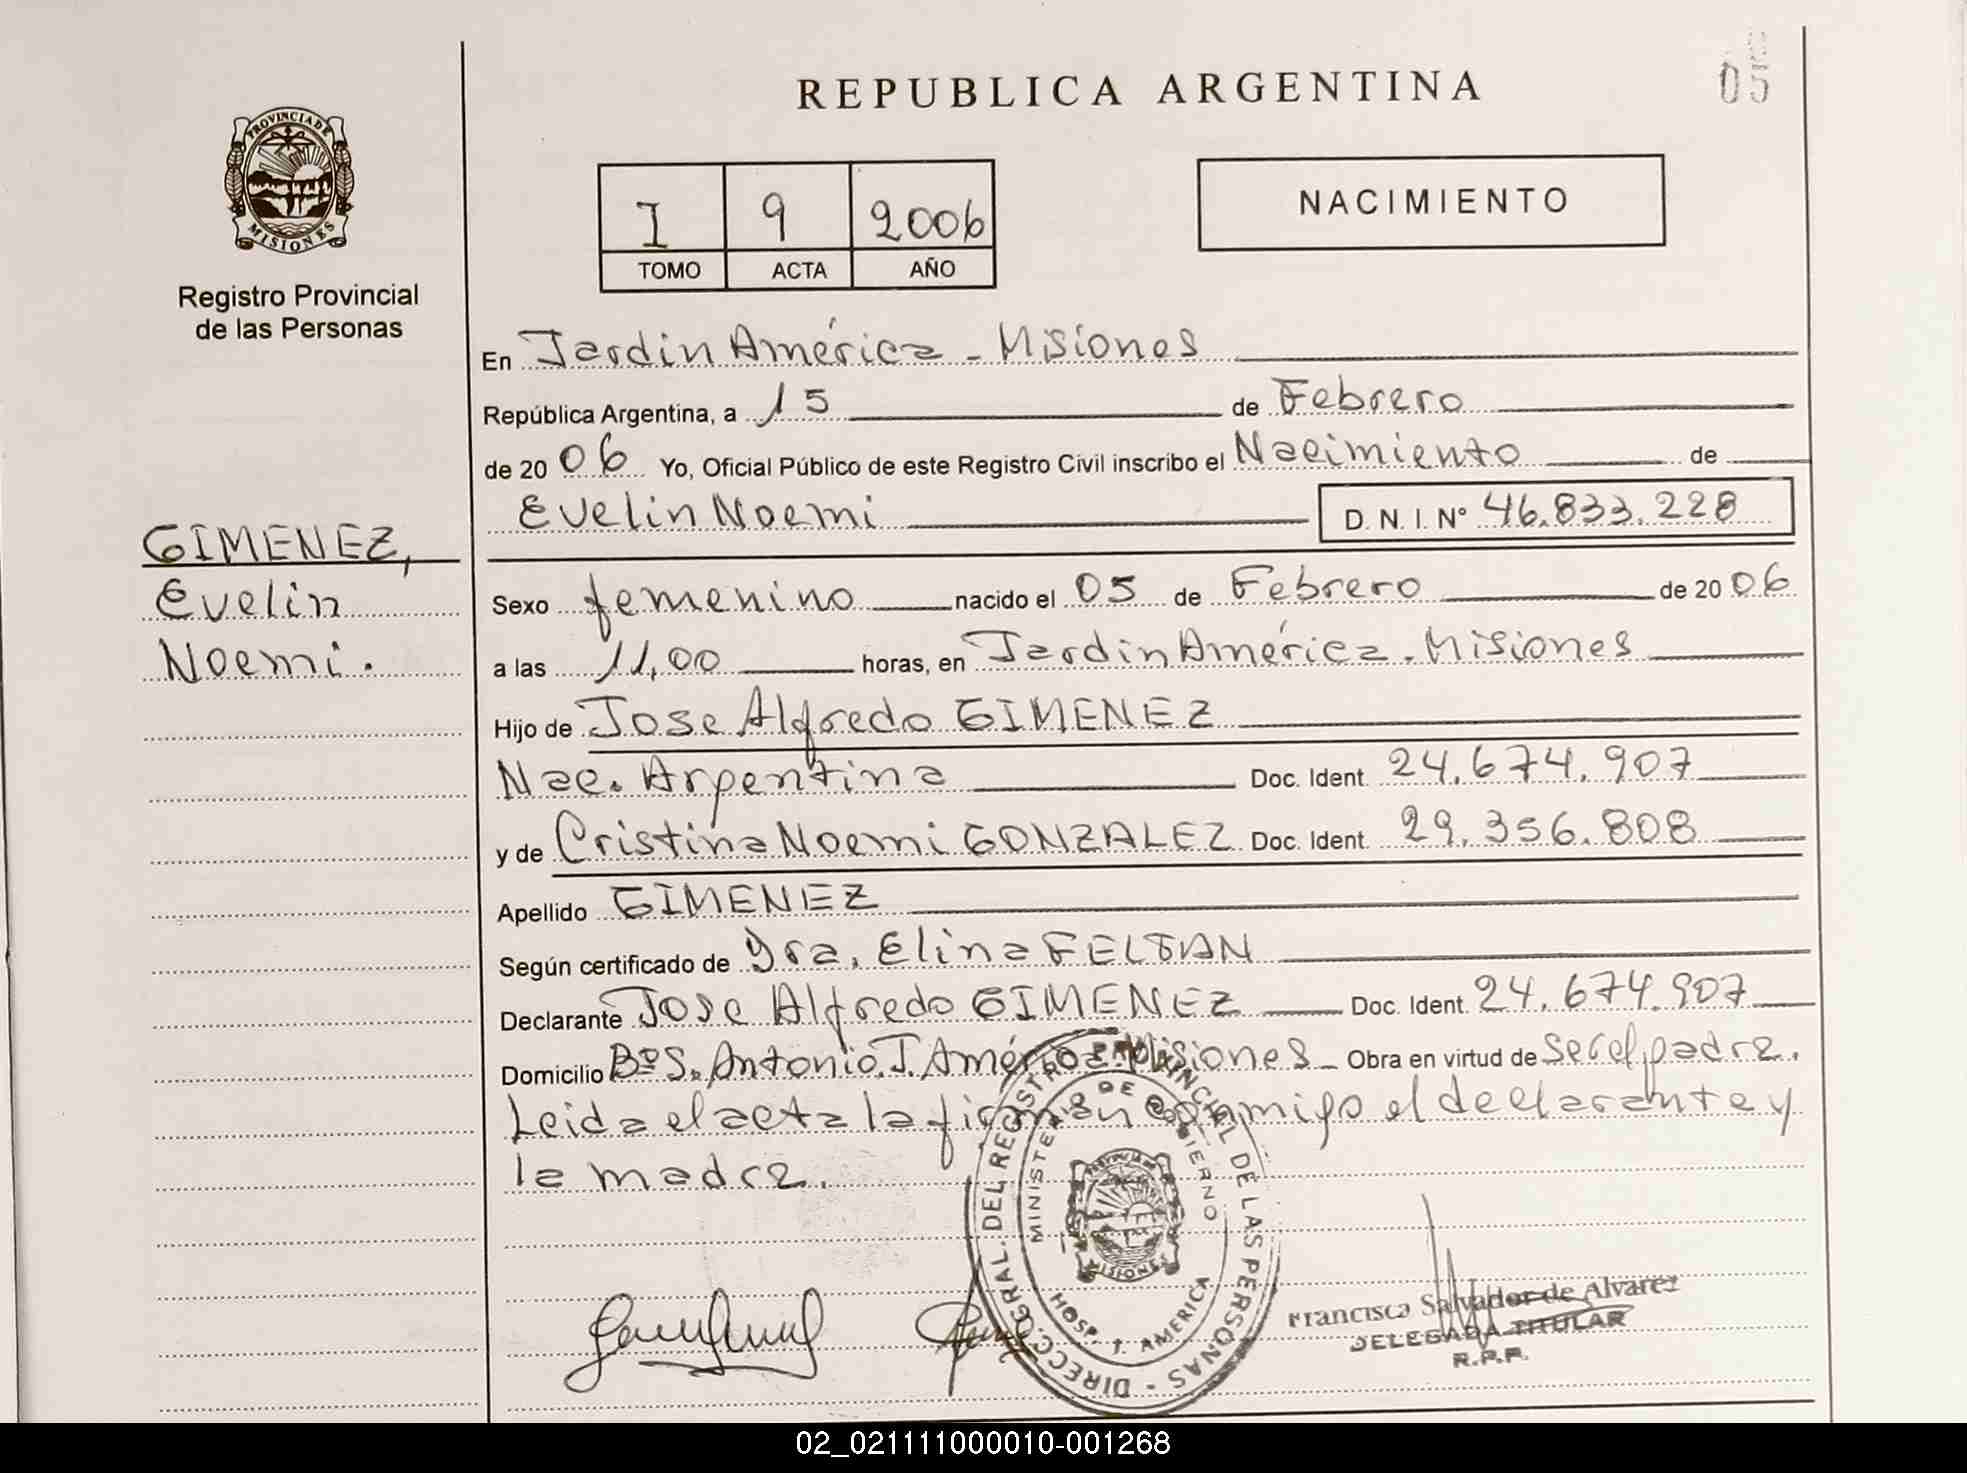 REPUBLICA ARGENTINA
05
PROVINCIA DE
MISIONES
Registro Provincial
de las Personas
I 9 2006
TOMO ACTA AÑO
NACIMIENTO
En Jardin América - Misiones
República Argentina, a 15 de Febrero
de 20 06 Yo, Oficial Público de este Registro Civil inscribo el Nacimiento de
Evelin Noemi D. N. I. N° 46.833.228
GIMENEZ,
Evelin
Noemi.
Sexo femenino nacido el 05 de Febrero de 20 06
a las 11,00 horas, en Jardin América. Misiones
Hijo de Jose Alfredo GIMENEZ
Nac. Argentina Doc. Ident. 24.674.907
y de Cristina Noemi GONZALEZ Doc. Ident. 29.356.808
Apellido GIMENEZ
Según certificado de Dra. Elina
Declarante Jose Alfredo GIMENEZ Doc. Ident. 24.674.907
Domicilio Bº S. Antonio. J. América Misiones Obra en virtud de ser el padre.
Leida el acta la firman conmigo el declarante y
la madre.
DIRECC. GRAL. DEL REGISTRO PROVINCIAL DE LAS PERSONAS
MINISTERIO DE GOBIERNO
MISIONES
HOSP. J. AMERICA
Francisca Salvador de Alvarez
DELEGADA TITULAR
R.P.P.
02_021111000010-001268